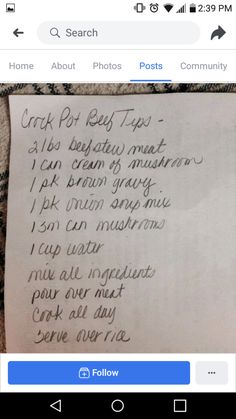 2:39 PM
Search
Home About Photos Posts Community
Crock Pot Beef Tips -
2 lbs beef stew meat
1 can cream of mushroom
1 pk brown gravy
1 pk onion soup mix
1 sm can mushrooms
1 cup water
mix all ingredients
pour over meat
Cook all day
Serve over rice
Follow